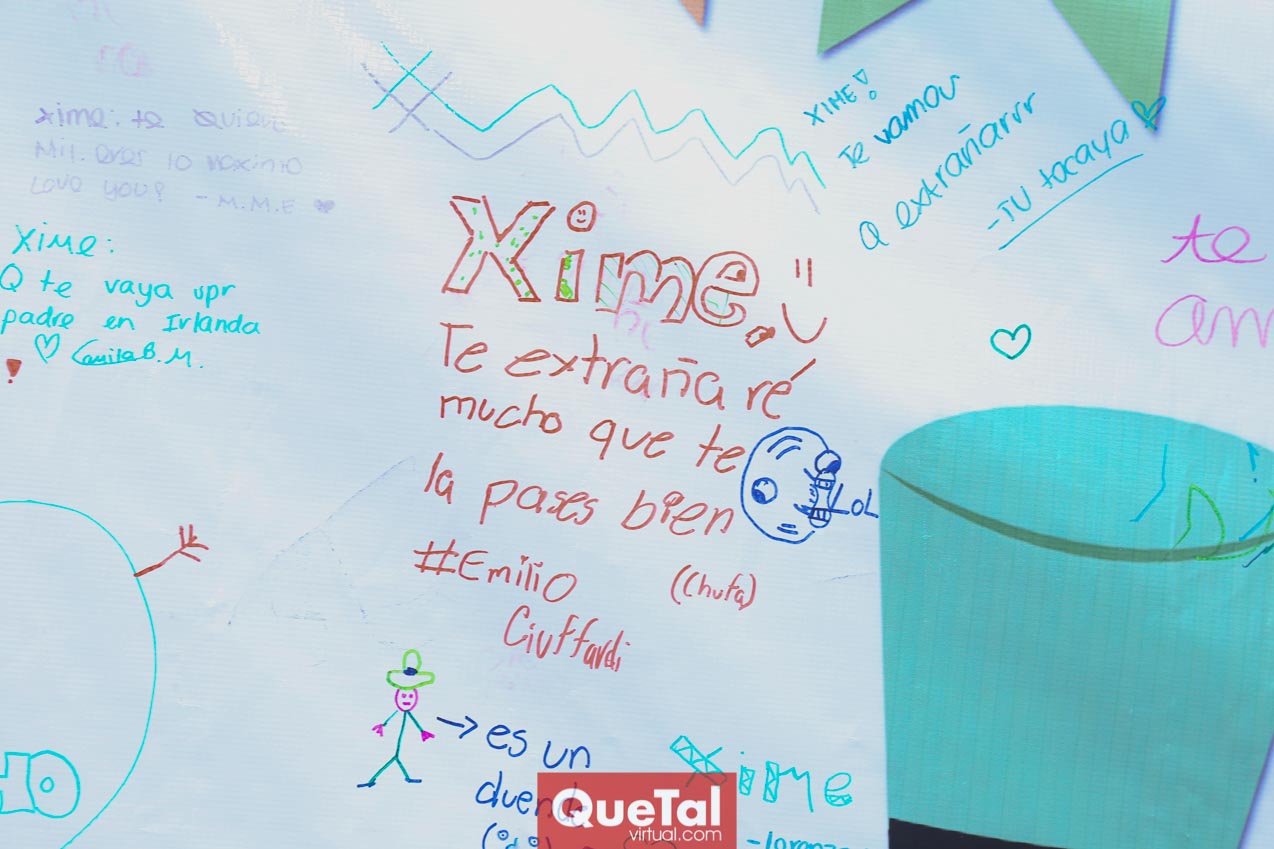 xime: te quiero
Mil. eres lo maximo
Love you! - M.M.E
XIME:
Q te vaya upr
padre en Irlanda
Camila B. M.
XIME!
Te vamou
a extrañarrr
-TU tocaya
te
am
Xime.
Te extrañaré
mucho que te
la pases bien
LOL
#Emilio (Chufa)
Ciuffardi
→ es un
duende
Xime
-lorenzo
QueTal
virtual.com